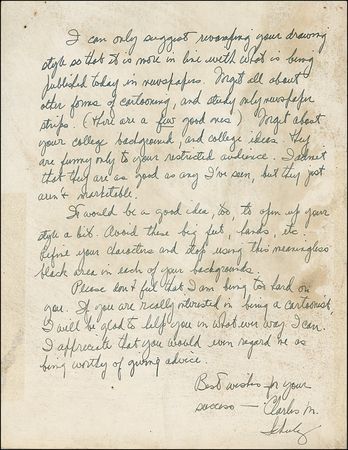 I can only suggest revamping your drawing
style so that it is more in line with what is being
published today in newspapers. Forget all about
other forms of cartooning, and study only newspaper
strips. (There are a few good ones) Forget about
your college background, and college ideas. They
are funny only to your restricted audience. I admit
that they are as good as any I've seen, but they just
aren't marketable.
It would be a good idea, too, to open up your
style a bit. Avoid these big feet, hands, etc.
Refine your characters and stop using this meaningless
black area in each of your backgrounds.
Please don't feel that I am being too hard on
you. If you are really interested in being a cartoonist,
I will be glad to help you in what ever way I can.
I appreciate that you would even regard me as
being worthy of giving advice.
Best wishes for your
success — Charles M.
Schulz